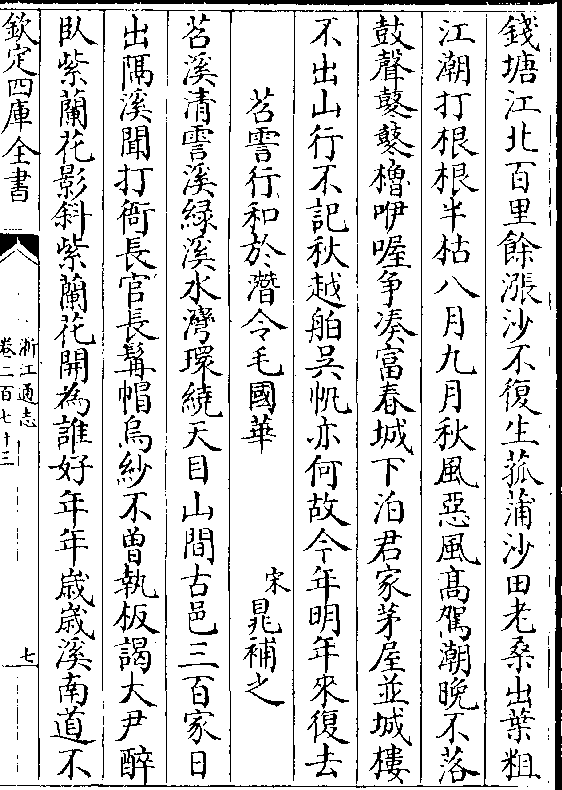 錢塘江北百里餘漲沙不復生菰蒲沙田老桑出葉粗
江潮打根根半枯八月九月秋風惡風髙駕潮晚不落
鼓聲鼕鼕櫓咿喔争凑富春城下泊君家茅屋並城樓
不出山行不記秋越舶吳帆亦何故今年明年來復去
苕霅行和於潛令毛國華
宋晁補之
苕溪清霅溪綠溪水灣環繞天目山間古邑三百家日
出隔溪聞打衙長官長髯帽烏紗不曽執板謁大尹醉
臥紫蘭花影斜紫蘭花開為誰好年年歲歲溪南道不
欽定四庫全書
浙江通志
卷二百七十三
七